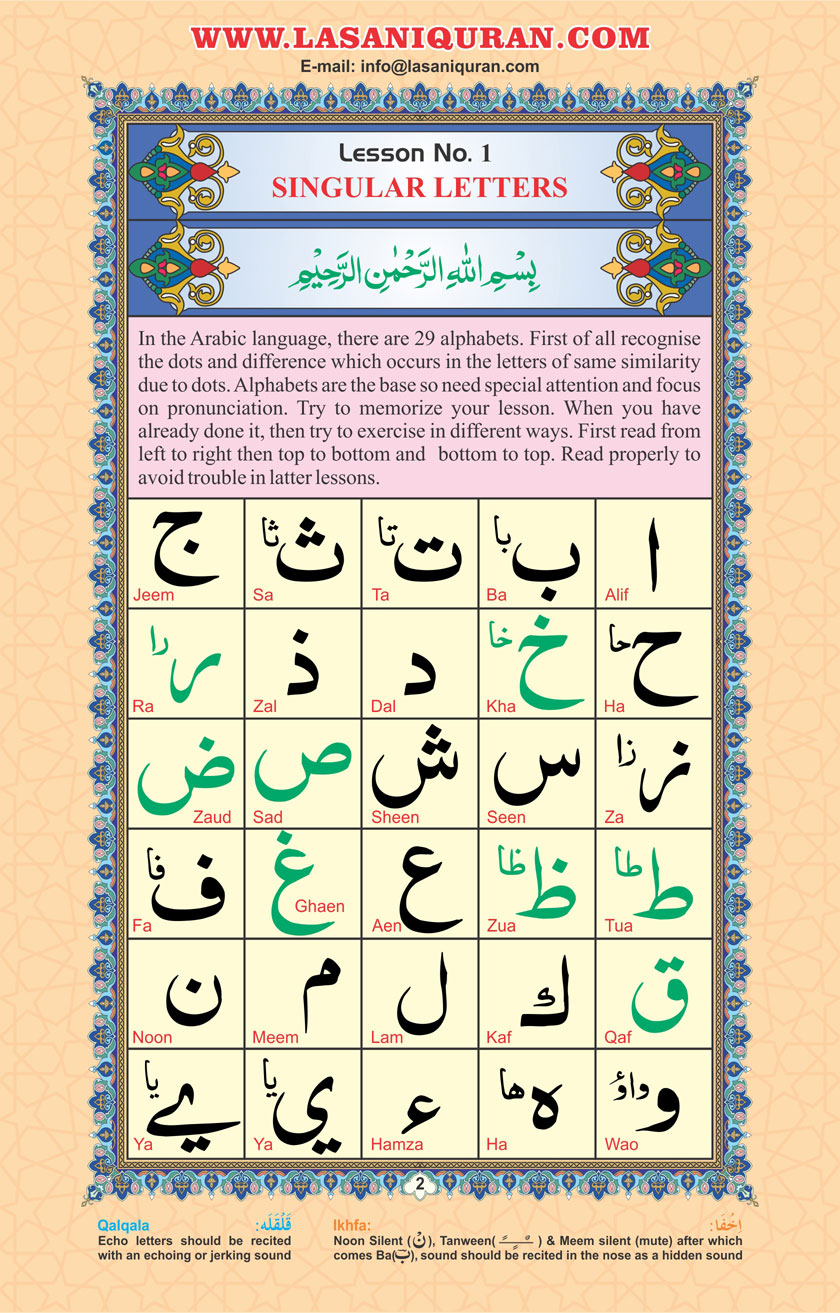 WWW.LASANIQURAN.COM
E-mail: info@lasaniquran.com
Lesson No. 1
SINGULAR LETTERS
بِسْمِ اللهِ الرَّحْمٰنِ الرَّحِيْمِ
In the Arabic language, there are 29 alphabets. First of all recognise
the dots and difference which occurs in the letters of same similarity
due to dots. Alphabets are the base so need special attention and focus
on pronunciation. Try to memorize your lesson. When you have
already done it, then try to exercise in different ways. First read from
left to right then top to bottom and bottom to top. Read properly to
avoid trouble in latter lessons.
ا ب با ت تا ث ثا ج
Alif Ba Ta Sa Jeem
ح حا خ خا د ذ ر را
Ha Kha Dal Zal Ra
ز زا س ش ص ض
Za Seen Sheen Sad Zaud
ط طا ظ ظا ع غ ف فا
Tua Zua Aen Ghaen Fa
ق ك ل م ن
Qaf Kaf Lam Meem Noon
و واؤ ه ها ء ي يا ے يا
Wao Ha Hamza Ya Ya
2
Qalqala قَلْقَلَه:
Echo letters should be recited
with an echoing or jerking sound
Ikhfa: اِخْفَا:
Noon Silent (نْ), Tanween( ) & Meem silent (mute) after which
comes Ba(ب), sound should be recited in the nose as a hidden sound